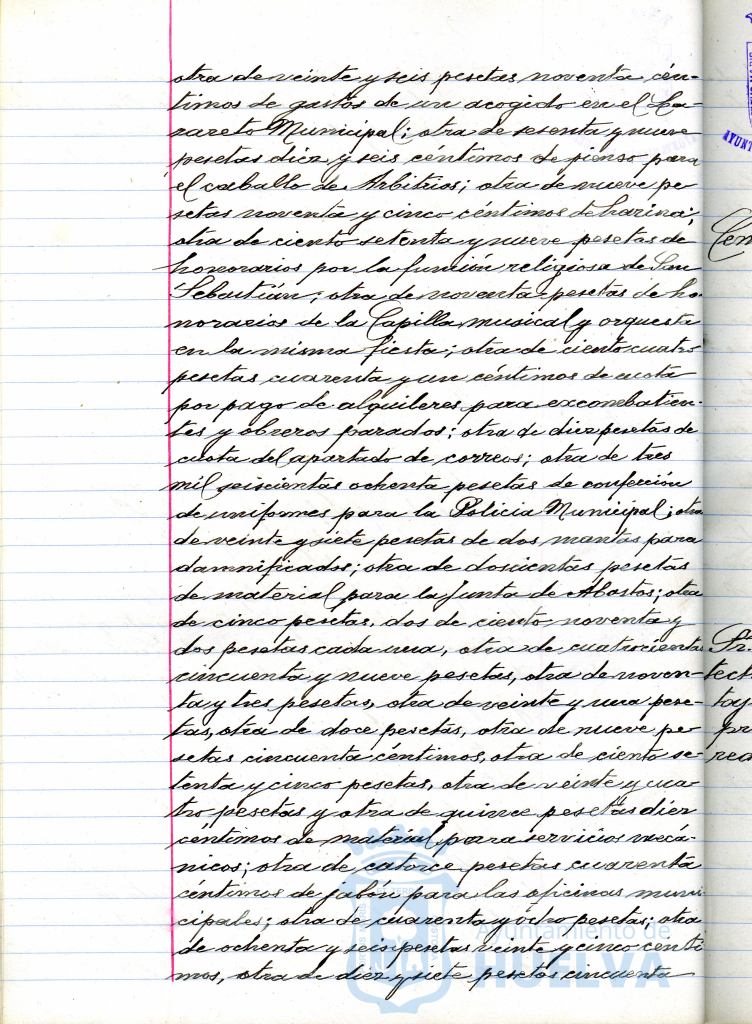 otra de veinte y seis pesetas noventa cén-
timos de gastos de un acogido en el La-
zareto Municipal; otra de sesenta y nueve
pesetas diez y seis céntimos de pienso para
el caballo de Arbitrios; otra de nueve pe
setas noventa y cinco céntimos de harina;
otra de ciento setenta y nueve pesetas de
honorarios por la función religiosa de San
Sebastián; otra de noventa pesetas de ho-
norarios de la Capilla musical y orquesta
en la misma fiesta; otra de ciento cuatro
pesetas cuarenta y un céntimos de cuota
por pago de alquileres para excombatien-
tes y obreros parados; otra de diez pesetas de
cuota del apartado de correos; otra de tres
mil seiscientas ochenta pesetas de confección
de uniformes para la Policia Municipal; otra
de veinte y siete pesetas de dos mantas para
damnificados; otra de doscientas pesetas
de material para la Junta de Abastos; otra
de cinco pesetas, dos de ciento noventa y
dos pesetas cada una, otra de cuatrocientas
cincuenta y nueve pesetas, otra de noven-
ta y tres pesetas, otra de veinte y una pese-
tas, otra de doce pesetas, otra de nueve pe
setas cincuenta céntimos, otra de ciento se-
tenta y cinco pesetas, otra de veinte y cua-
tro pesetas y otra de quince pesetas diez
céntimos de material para servicios mecá-
nicos; otra de catorce pesetas cuarenta
céntimos de jabón para las oficinas muni-
cipales; otra de cuarenta y ocho pesetas; otra
de ochenta y seis pesetas veinte y cinco centi
mos, otra de diez y siete pesetas cincuenta
Ayuntamiento de
HUELVA
AYUNT
Cen
Pr.
tect
taj
pr
rea